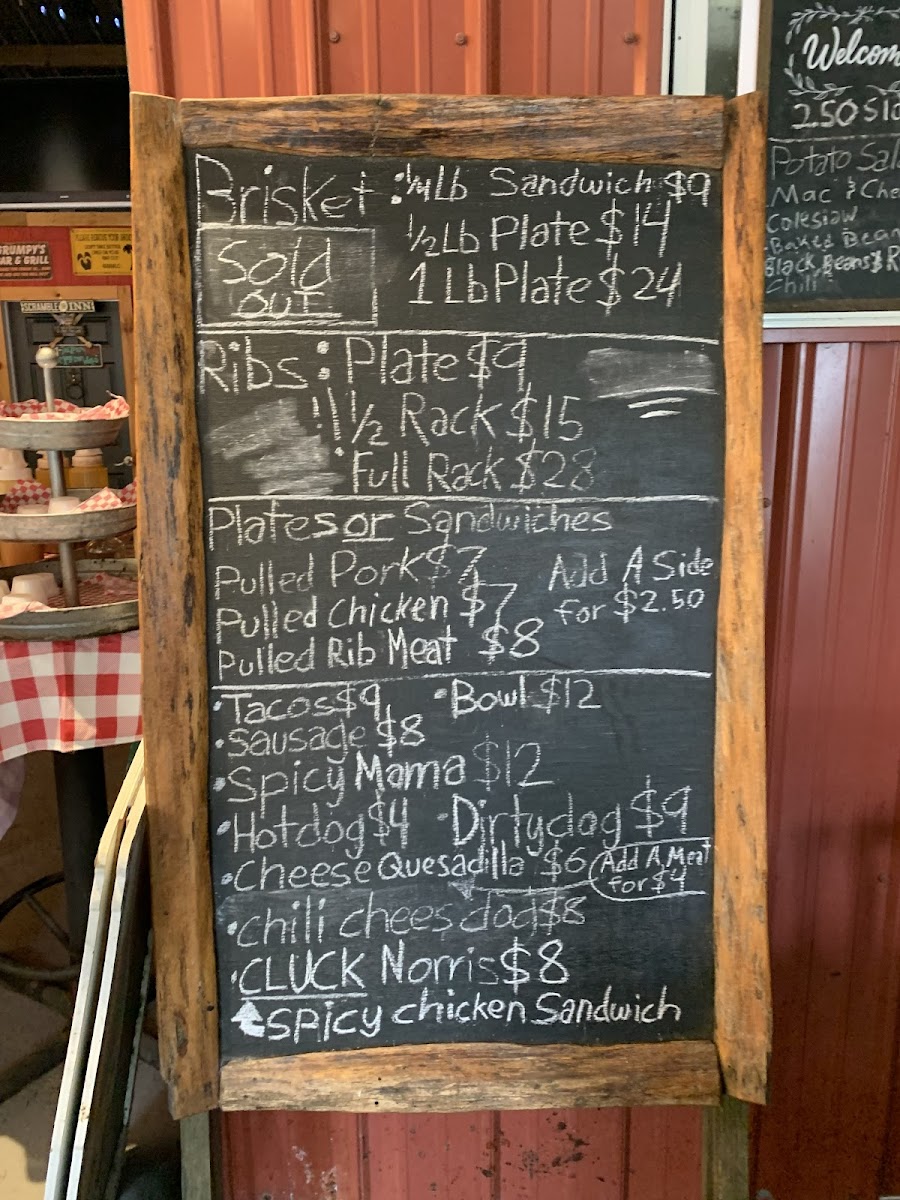 Brisket : 1/4 Lb Sandwich $9
Sold out
1/2 Lb Plate $14
1 Lb Plate $24
Ribs : Plate $9
1/2 Rack $15
Full Rack $28
Plates or Sandwiches
Pulled Pork $7
Pulled Chicken $7
Pulled Rib Meat $8
Add A Side
for $2.50
·Tacos $9 ·Bowl $12
·Sausage $8
·Spicy Mama $12
·Hotdog $4 ·Dirtydog $9
·Cheese Quesadilla $6
Add A Meat
for $4
·chili chees dog $8
·CLUCK Norris $8
spicy chicken Sandwich
Welcom
2.50
Potato Sal
Mac & Che
Coleslaw
Baked Bean
Black Beans & R
Chili
GRUMPY'S
BAR & GRILL
SCRAMBLE INN